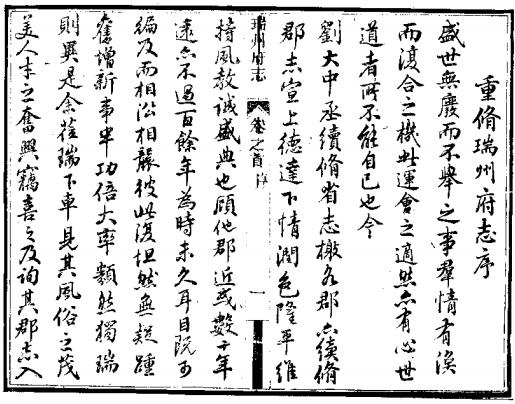 重脩瑞州府志序
盛世無廢而不舉之事羣情有渙
而復合之機此運會之適然亦有心世
道者所不能自已也今
劉大中丞續脩省志檄各郡亦續脩
郡志宣上德達下情潤色隆平維
瑞州府志
卷之首
序
一
持風敎誠盛典也顧他郡近或數十年
遠亦不過百餘年為時未久耳目既可
徧及而相沿相襲彼此復坦然無疑踵
舊增新事半功倍大率類然獨瑞
則異是余莅瑞下車見其風俗之茂
美人才之奮興竊喜之及詢其郡志入